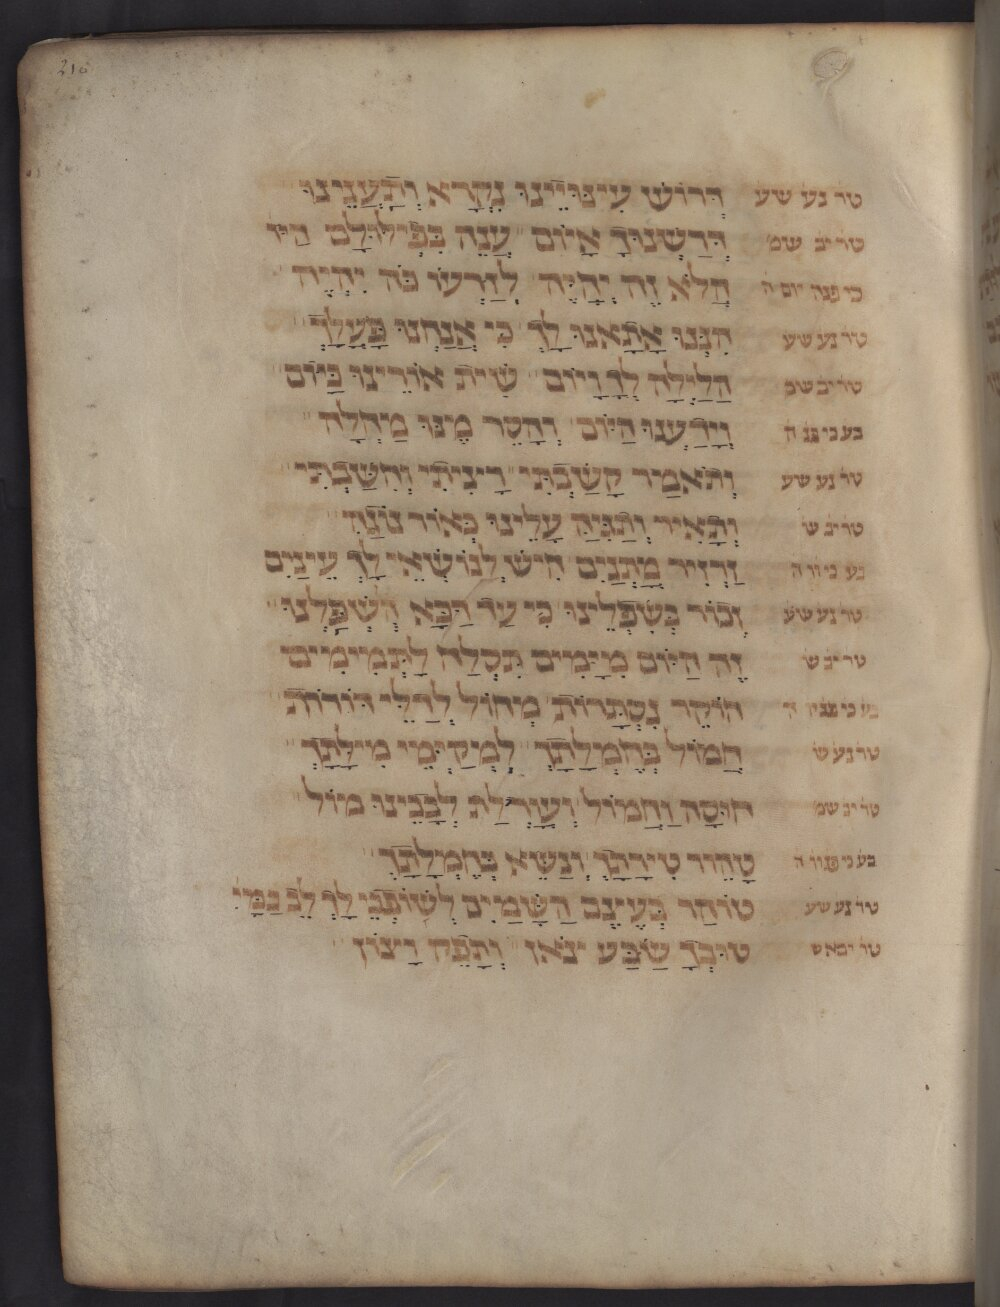 210
טר נע שע דְּרוֹשׁ עִינּוּיֵינוּ נִקְרָא וְתַעֲנֵינוּ
טר יב שמ דְּרַשְׁנוּךָ אָיוֹם עֲנֵה בְּפִילּוּלָם
כי פנה יום ה הֲלֹא זֶה יִהְיֶה לְזַרְעוֹ כֹּה יִהְיֶה
טר נע שע הִנְּנוּ אָתָאנוּ לָךְ כִּי אֲנַחְנוּ פָעֳלָךְ
טר יב שמ הַלַּיְלָה לְךָ וָיוֹם שִׁית אוֹרֵינוּ כַּיּוֹם
בע כי פנ ה וְיַרְגַּעֲנוּ הַיּוֹם וְהָסֵר מֶנּוּ מַחֲלָה
טר נע שע וְתֹאמַר קָשַׁבְתִּי רָצִיתִי וְהִשַּׁבְתִּי
טר יב ש וְתָאִיר וְתַגִּיהַּ עָלֵינוּ כְּאוֹר נוֹגַהּ
זַרְזִיר מָתְנַיִם חִישׁ לְנוֹשְׂאֵי לָךְ עֵינַיִם
טר נע שע זְכוֹר בְּשִׁפְלֵינוּ כִּי עַד דַּכָּא הָשְׁפָּלְנוּ
טר יב ש זֶה הַיּוֹם מִיָּמִים תִּסְלַח לַתְּמִימִים
הוֹקֵר נִסְתָּרוֹת מְחוֹל לְדַלֵּי דּוֹרוֹת
טר נע ש חֲמוֹל בְּחֶמְלָתָךְ לִמְקַיְּימֵי מִילָּתָךְ
טר יב שמ חוּסָה וַחֲמוֹל וְעָרְלַת לְבָבֵינוּ מוֹל
טָהֵיר טִירָתָךְ וְנַשֵּׂא בְּחֶמְלָתָךְ
טר נע שע טוֹהַר כְּעֶצֶם הַשָּׁמַיִם לְשׁוֹפְכֵי לָךְ לֵב כַּמַּיִ
טר יב אש טוּבְךָ שַׂבַּע יצֹאן וְתָפֵק רָצוֹן